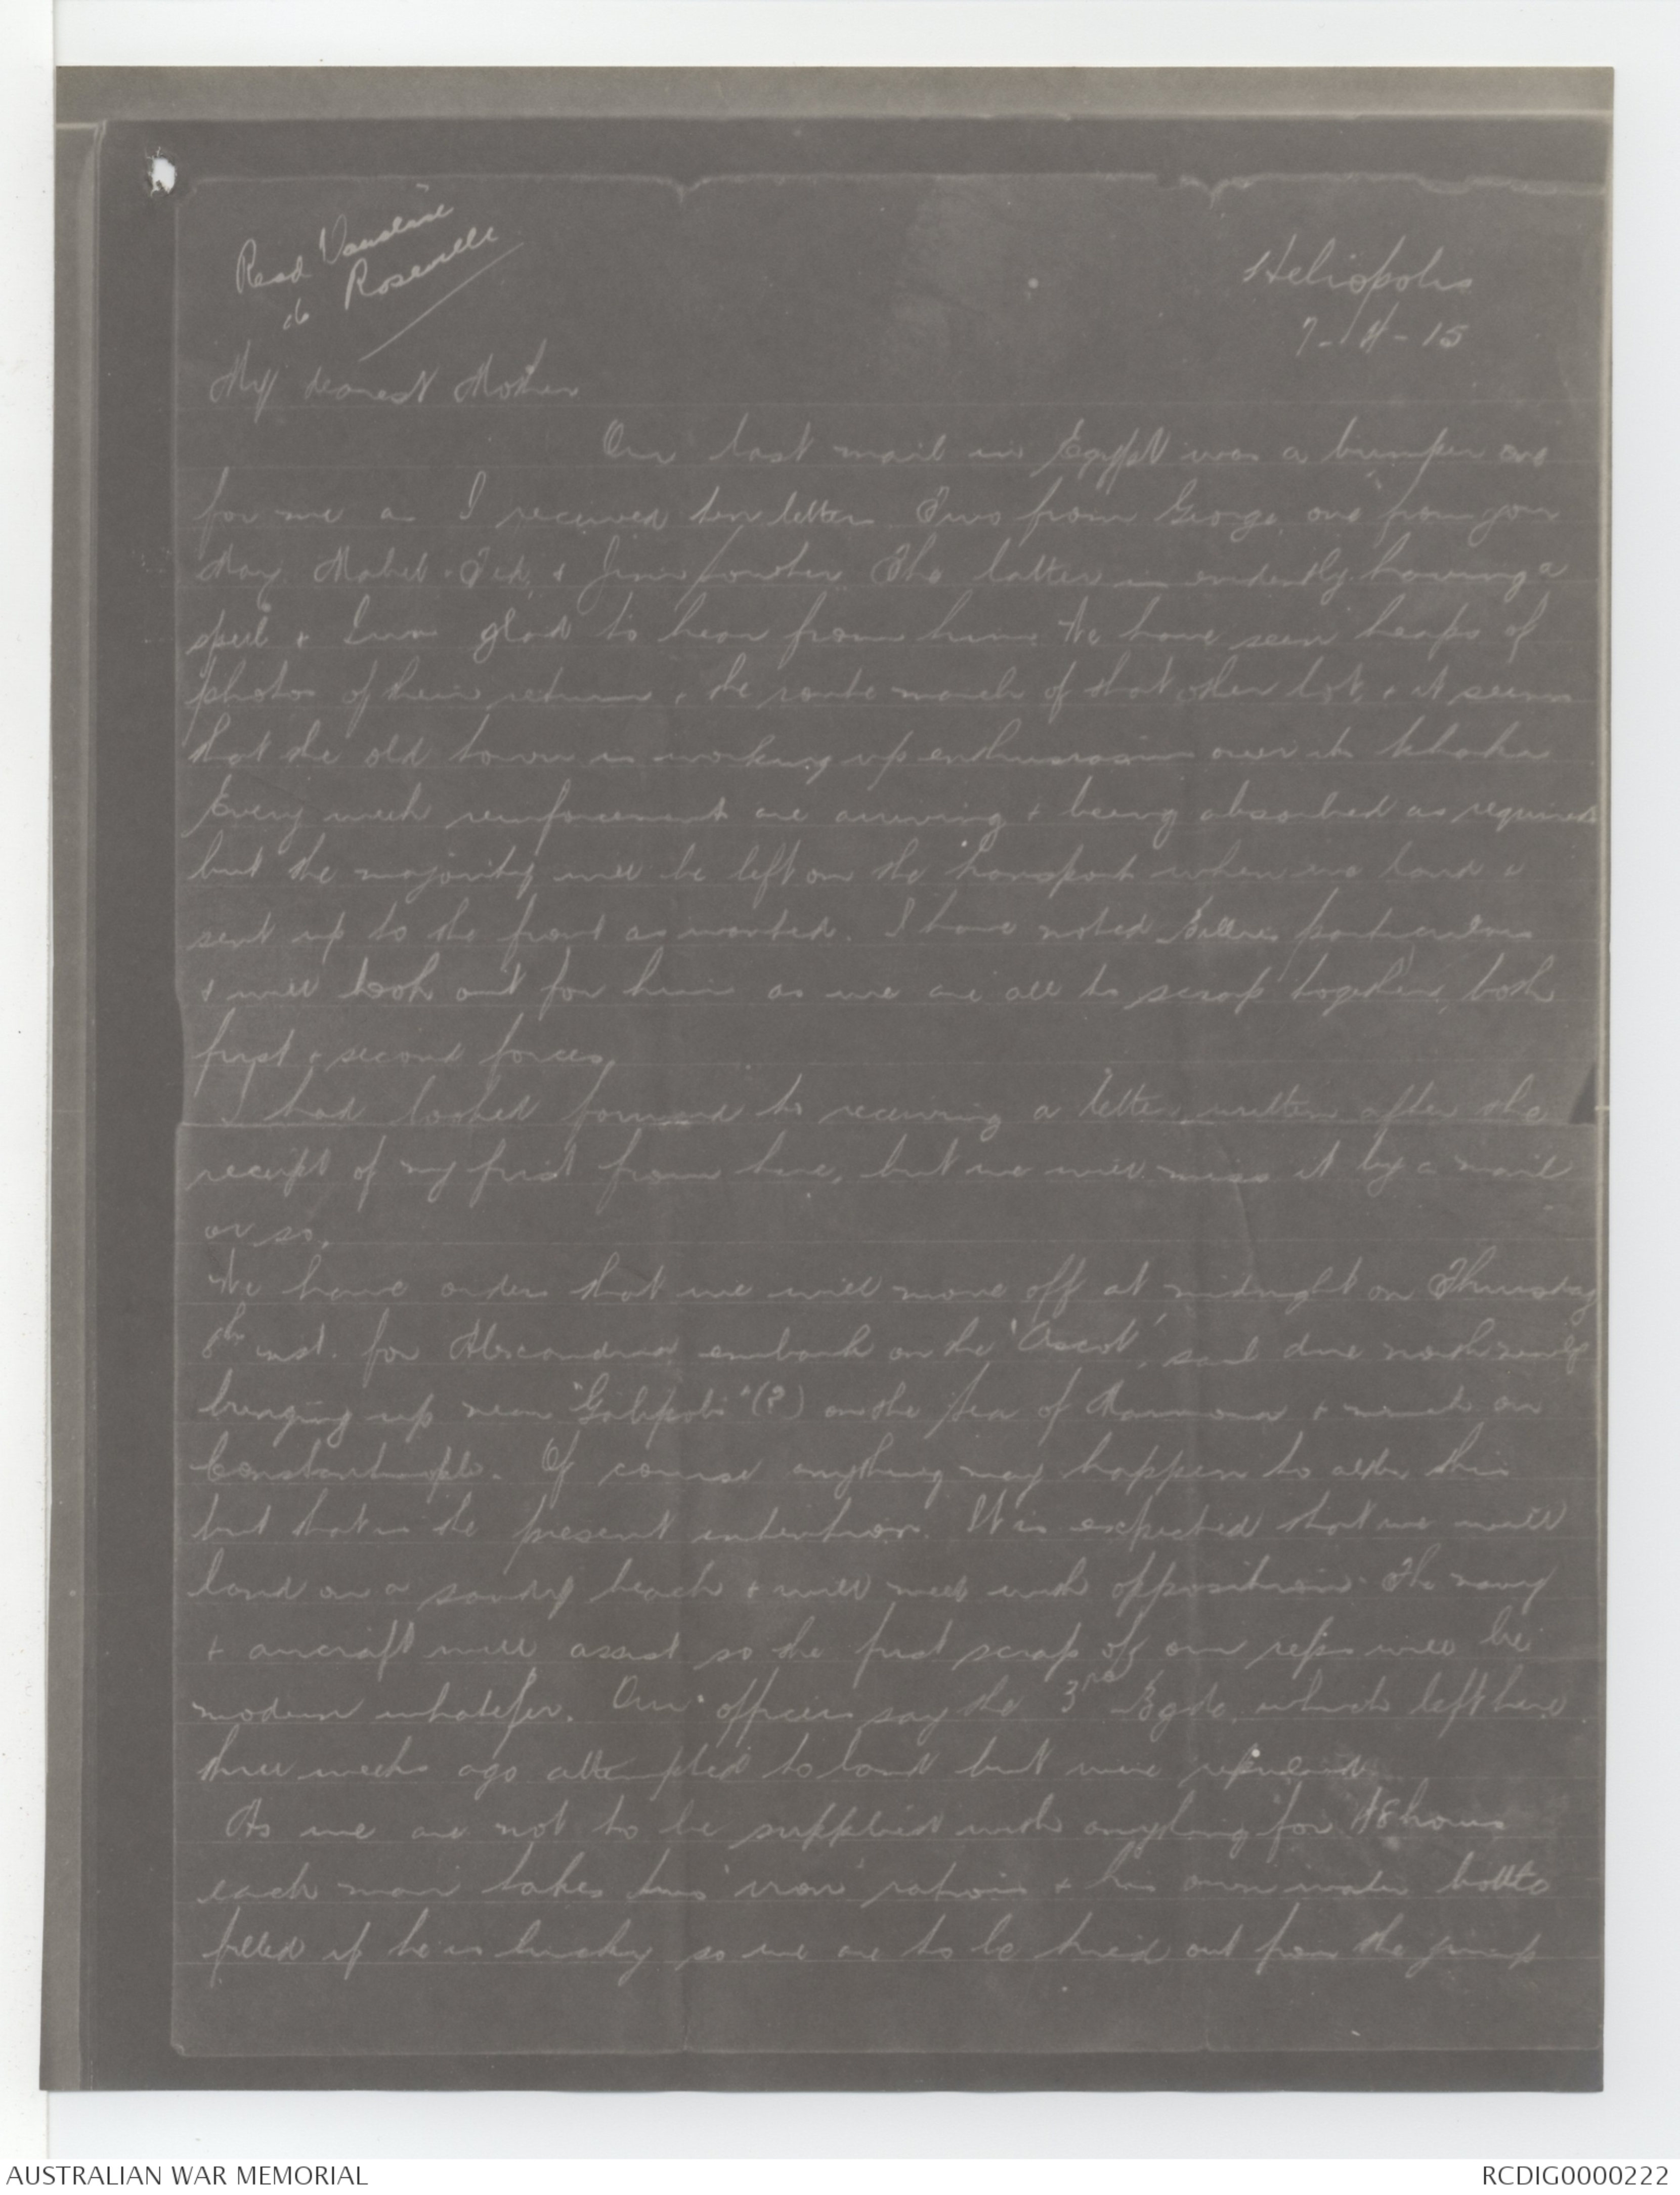 Read
Roseville
Heliopolis
7-4-15
My dearest Mother
Our last mail in Egypt was a bumper one
for me as I received ten letters. Two from George, one from you
May, Mabel, Ted, & Jim The latter is evidently having a
spell & I was glad to hear from him. We have seen heaps of
photos of their return, & the route march of that other lot, & it seems
that the old town is working up enthusiasm over its khaki
Every week reinforcements are arriving & being absorbed as required
but the majority will be left on the transport when we land &
sent up to the front as wanted. I have noted particulars
& will look out for him as we are all to scrap together, both
first & second forces.
I had looked forward to receiving a letter written after the
receipt of my first from here, but we will miss it by a mail
or so.
We have orders that we will move off at midnight on Thursday
8th inst. for Alexandria embark on the 'Ascot', sail due north
bringing up near "Galipoli" (?) on the Sea of Marmora & march on
Constantinople. Of course anything may happen to alter this
but that is the present intention. It is expected that we will
land on a sandy beach & will meet with opposition. The navy
& aircraft will assist so the first scrap of our will be
modern whatefer. Our officers say the 3rd Bgde. which left here
three weeks ago attempted to land but were repulsed.
As we are not to be supplied with anything for 48 hours
each man takes his 'iron' rations & his own water bottle
filled if he is lucky so we are to be tried out from the jump